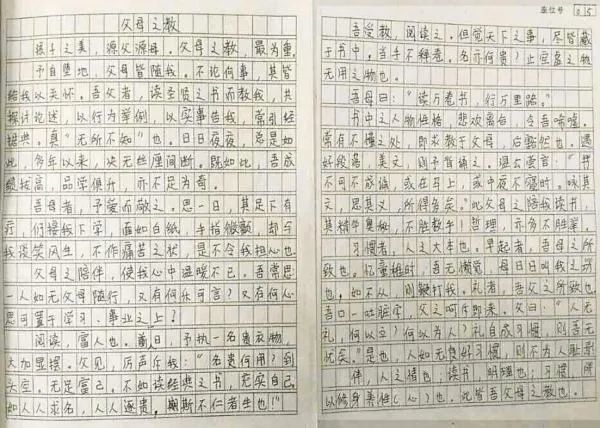 父母之教
孩子之美，源父源母。父母之教，最为重。
予自坠地，父母皆随我。不论何事，其皆
给我以关怀。吾父者，读圣贤之书而教我，共
探讨论述，以行为举例，以实事告我，常引经
据典。真“无所不知”也。日日夜夜，总是如
此，多年以来，决无丝厘间断。既如此，吾成
级拔高，品学俱升，亦不足为奇。
吾母者，予爱而敬之。思一日，其足下有
疗，们接我下学，面如白纸，手指微颤，却与
我谈笑风生，不作痛苦之状，是不令我担心也
父母之陪伴，使我心中温暖不已。吾常思
一人如无父母随行，又有何乐可言？又有何心
思可置于学习、事业之上？
阅读，富人也。前日，予执一名贵衣物，
大加显摆。父见，厉声斥我：“名贵何用？到
头空。无足富己。不如读经典之书，充实自己。
如人人求名，人人逐贵，期斯不仁者生也！”
座位号 05
吾受教，阅读之。但觉天下之事，尽皆藏
于书中。当手不释卷。名亦何贵？止空虚之物
无用之物也。
吾母曰：“读万卷书，行万里路。”
书中之人物性格，悲欢离合，令吾唏嘘。
常有不懂之处，即求教于父母，后豁然也。遇
好段落，美文，则予皆诵之。温公尝言：“书
不可不成诵，或在马上，或中夜不寝时。咏其
文，思其义，所得多矣。”此父母之陪我读书，
其精华奥秘，不胜数乎！哲理，亦多不胜举。
习惯者，人之大本也。早起者，吾母之所
致也。忆童稚时，吾无懒觉，母日日叫我之功
也，如不从，则鞭打我。礼者，吾父之所致也
吾口一吐脏字，父之呵斥即来。父曰：“人无
礼，何以立？何以为人？礼自成习惯，则善无
忧矣。”是也，人如无良好习惯，则不为人耻
伴，人之情也；读书，明理也；习惯，得
以修身养性（心）也。此皆吾父母之教也。